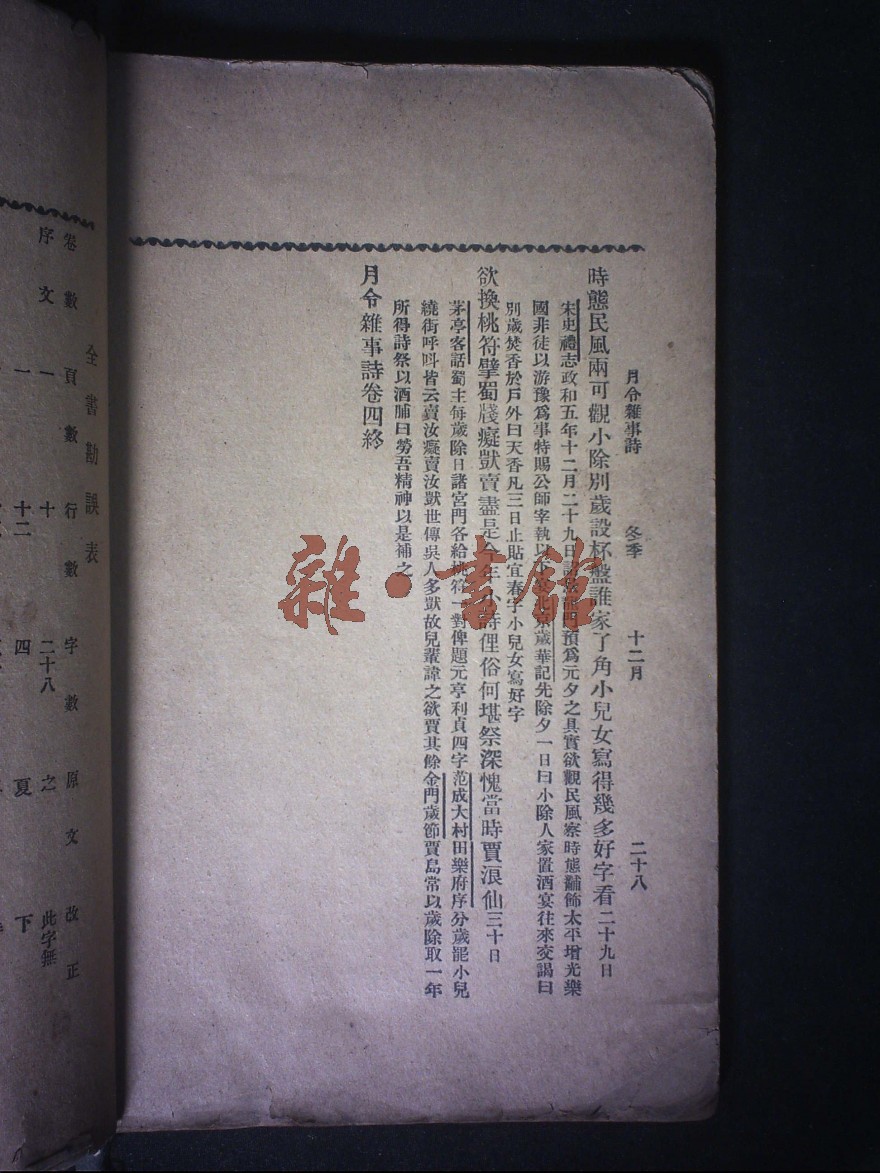 月令雜事詩 冬季 十二月 二十八
時態民風兩可觀小除別歲設杯盤誰家了角小兒女寫得幾多好字看二十九日
宋史禮志政和五年十二月二十九日詔 預爲元夕之具實欲觀民風察時態黼飾太平增光樂
國非徒以游豫爲事特賜公師宰執以下 歲華記先除夕一日曰小除人家置酒宴往來交謁曰
別歲焚香於戶外曰天香凡三日止貼宜春字小兒女寫好字
欲換桃符擘蜀牋癡獃賣盡是今年 詩俚俗何堪祭深愧當時賈浪仙三十日
茅亭客話蜀主每歲除日諸宮門各給桃符一對俾題元亨利貞四字范成大村田樂府序分歲罷小兒
繞街呼呌皆云賣汝癡賣汝獃世傳吳人多獃故兒輩諱之欲賈其餘金門歲節賈島常以歲除取一年
所得詩祭以酒脯曰勞吾精神以是補之
月令雜事詩卷四終
雜·書館
全書勘誤表
卷數 頁數 行數 字數 原文 改正
序文 一 十 二十八 之 此字無
一 十二 四 夏 下